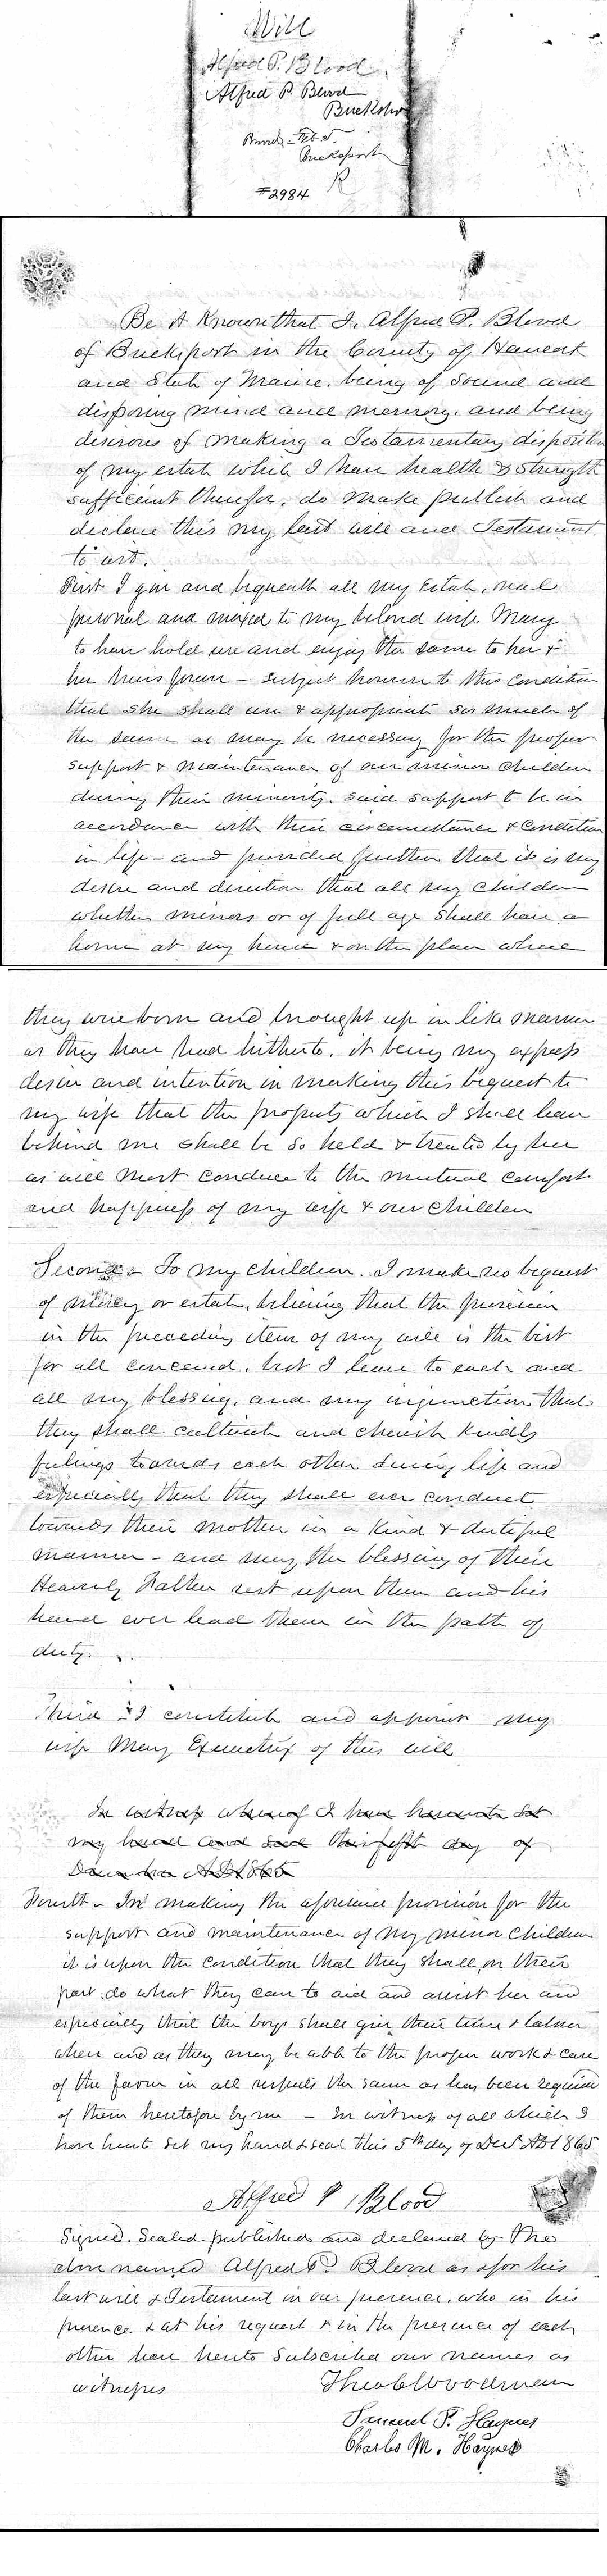 Will
Alfred P. Blood
Alfred P Blood
Bucksport
Feb
Bucksport
R
#2984
Be it Known that I, Alfred P. Blood
of Bucksport in the County of Hancock
and State of Maine, being of sound and
disposing mind and memory, and being
desirous of making a Testamentary disposition
of my estate while I have health & strength
sufficient therefor, do make publish and
declare this my last will and Testament
to wit.
First I give and bequeath all my Estate, real
personal and mixed to my beloved wife Mary
to have hold use and enjoy the same to her &
her heirs forever – subject however to this condition
that she shall use & appropriate so much of
the same as may be necessary for the proper
support & maintenance of our minor children
during their minority. said support to be in
accordance with their circumstance & condition
in life – and provided further that it is my
desire and direction that all my children
whether minors or of full age shall have a
home at my house & on the place where
they were born and brought up in like manner
as they have had hitherto, it being my express
desire and intention in making this bequest to
my wife that the property which I shall leave
behind me shall be so held & treated by her
as will most conduce to the mutual comfort
and happiness of my wife & our children
Second – To my children. I make no bequest
of money or estate, believing that the provision
in the preceding item of my will is the best
for all concerned. but I leave to each and
all my blessing, and my injunction that
they shall cultivate and cherish kindly
feelings towards each other during life and
especially that they shall ever conduct
towards their mother in a kind & dutiful
manner – and may the blessing of their
Heavenly Father rest upon them and his
hand ever lead them in the path of
duty.
Third – I constitute and appoint my
wife Mary Executrix of this will
In witness whereof I have hereunto set
my hand and seal this fifth day of
December AD 1865
Fourth – In making the aforesaid provision for the
support and maintenance of my minor children
it is upon the condition that they shall, on their
part, do what they can to aid and assist her and
especially that the boys shall give their time & labor
when and as they may be able to the proper work & care
of the farm in all respects the same as has been required
of them heretofore by me – In witness of all which I
have hereto set my hand & seal this 5th day of Decr AD 1865
Alfred P Blood
Signed. Sealed published and declared by the
above named Alfred P. Blood as & for his
last will & Testament in our presence, who in his
presence & at his request & in the presence of each
other have hereto subscribed our names as
witnesses Theo C Woodman
Samuel P. Haynes
Charles M. Haynes